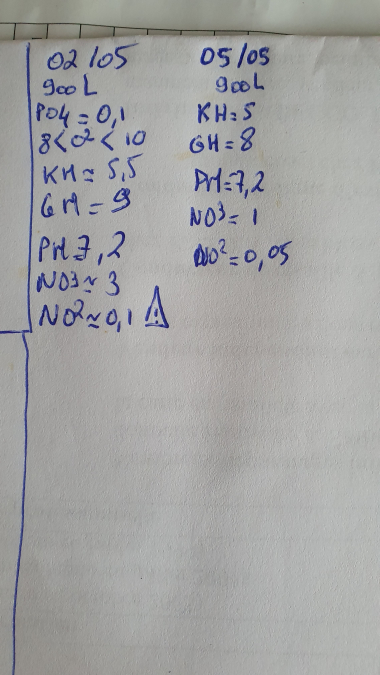 02/05
900L
PO4 = 0,1
8<O2<10
KH = 5,5
GH = 9
PH=7,2
NO3 ≈ 3
NO2 ≈ 0,1 ⚠
05/05
900L
KH=5
GH=8
PH=7,2
NO3= 1
NO2=0,05